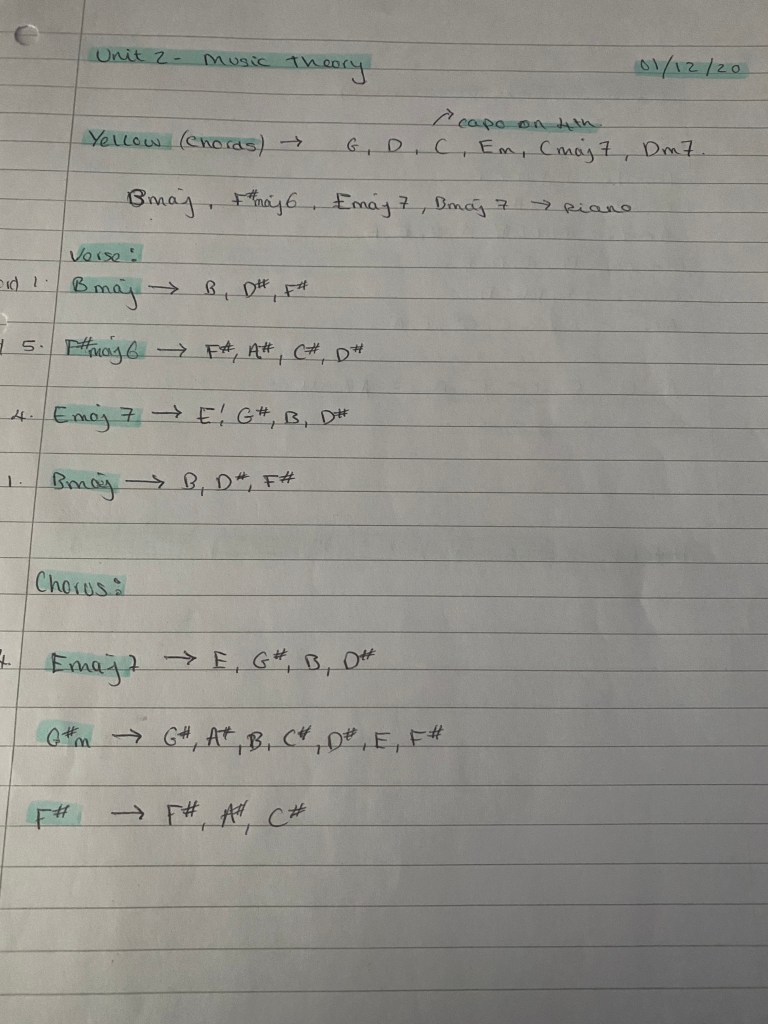 Unit 2 - Music Theory 01/12/20
↗ capo on 4th
Yellow (chords) → G, D, C, Em, Cmaj7, Dm7.
Bmaj, F#maj6, Emaj7, Bmaj7 → Piano
Verse:
1. Bmaj → B, D#, F#
5. F#maj6 → F#, A#, C#, D#
4. Emaj7 → E, G#, B, D#
1. Bmaj → B, D#, F#
Chorus:
4. Emaj7 → E, G#, B, D#
G#m → G#, A#, B, C#, D#, E, F#
F# → F#, A#, C#